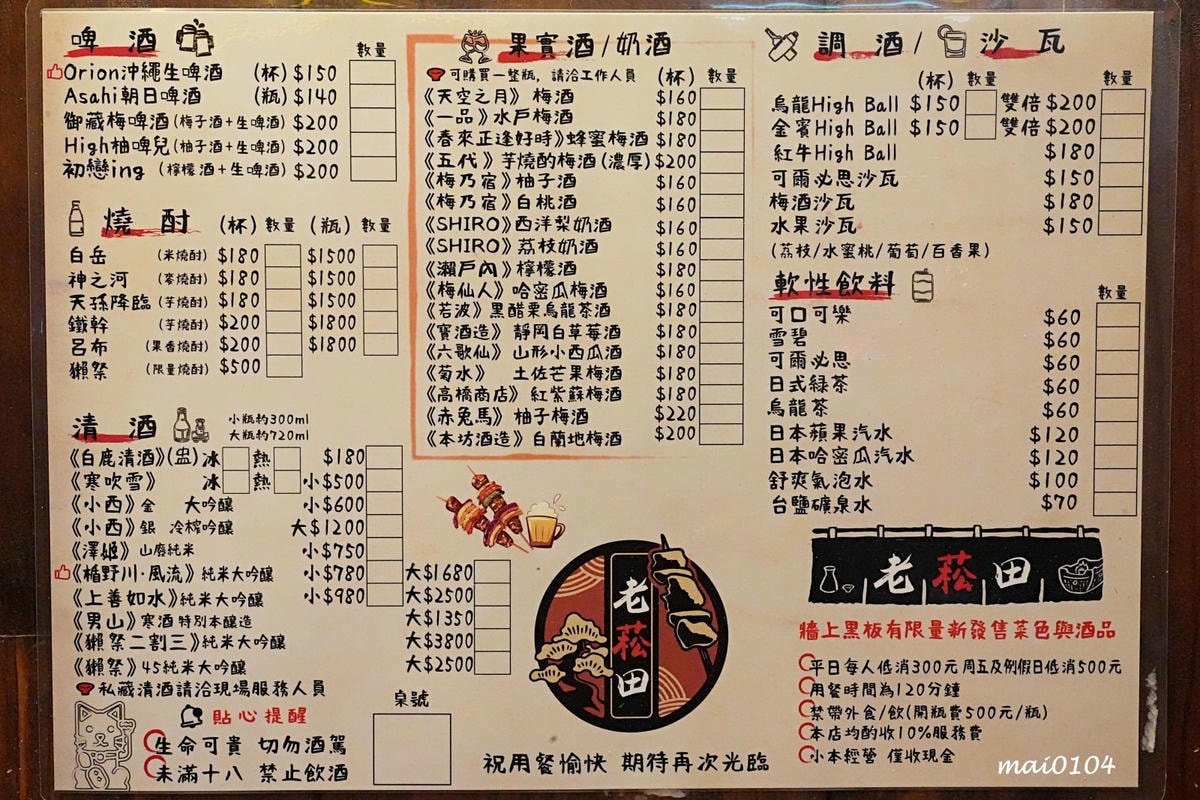 啤 酒
數量
Orion沖繩生啤酒 (杯) $150
Asahi朝日啤酒 (瓶) $140
御藏梅啤酒(梅子酒+生啤酒) $200
High柚啤兒(柚子酒+生啤酒) $200
初戀ing (檸檬酒+生啤酒) $200
燒 酎 (杯) 數量 (瓶) 數量
白岳 (米燒酎) $180 $1500
神之河 (麥燒酎) $180 $1500
天孫降臨 (芋燒酎) $180 $1500
鐵幹 (芋燒酎) $200 $1800
呂布 (果香燒酎) $200 $1800
獺祭 (限量燒酎) $500
清 酒
小瓶約300ml
大瓶約720ml
《白鹿清酒》(盅) 冰 熱 $180
《寒吹雪》 冰 熱 小$500
《小西》金 大吟釀 小$600
《小西》銀 冷榨吟釀 大$1200
《澤姬》山廢純米 小$750
《楯野川·風流》純米大吟釀 小$780 大$1680
《上善如水》純米大吟釀 小$980 大$2500
《男山》寒酒 特別本釀造 大$1350
《獺祭二割三》純米大吟釀 大$3800
《獺祭》45純米大吟釀 大$2500
私藏清酒請洽現場服務人員
貼心提醒
生命可貴 切勿酒駕
未滿十八 禁止飲酒
桌號
果實酒/奶酒
可購買一整瓶,請洽工作人員 (杯) 數量
《天空之月》 梅酒 $160
《一品》水戶梅酒 $180
《春來正逢好時》蜂蜜梅酒 $180
《五代》芋燒酌梅酒(濃厚) $200
《梅乃宿》柚子酒 $160
《梅乃宿》白桃酒 $160
《SHIRO》西洋梨奶酒 $160
《SHIRO》荔枝奶酒 $160
《瀨戶內》檸檬酒 $180
《梅仙人》哈密瓜梅酒 $160
《若波》黑醋栗烏龍茶酒 $180
《寶酒造》靜岡白草莓酒 $180
《六歌仙》山形小西瓜酒 $180
《菊水》 土佐芒果梅酒 $180
《高橋商店》紅紫蘇梅酒 $180
《赤兔馬》柚子梅酒 $220
《本坊酒造》白蘭地梅酒 $200
老菘田
祝用餐愉快 期待再次光臨
調 酒/ 沙 瓦
(杯) 數量 數量
烏龍High Ball $150 雙倍 $200
金賓High Ball $150 雙倍 $200
紅牛High Ball $180
可爾必思沙瓦 $150
梅酒沙瓦 $180
水果沙瓦 $150
(荔枝/水蜜桃/葡萄/百香果)
軟性飲料
數量
可口可樂 $60
雪碧 $60
可爾必思 $60
日式綠茶 $60
烏龍茶 $60
日本蘋果汽水 $120
日本哈密瓜汽水 $120
舒爽氣泡水 $100
台鹽礦泉水 $70
老菘田
牆上黑板有限量新發售菜色與酒品
平日每人低消300元 周五及例假日低消500元
用餐時間為120分鐘
禁帶外食/飲(開瓶費500元/瓶)
本店均酌收10%服務費
小本經營 僅收現金
mai0104